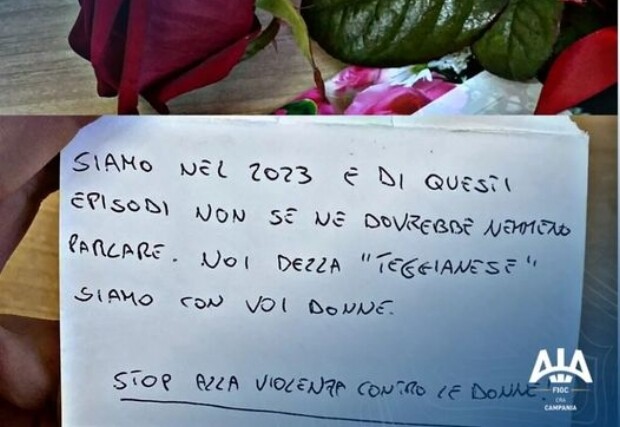 SIAMO NEL 2023 E DI QUESTI
EPISODI NON SE NE DOVREBBE NEMMENO
PARLARE. NOI DELLA "TEGGIANESE"
SIAMO CON VOI DONNE.
STOP ALLA VIOLENZA CONTRO LE DONNE.
AIA
FIGC
CRA
CAMPANIA